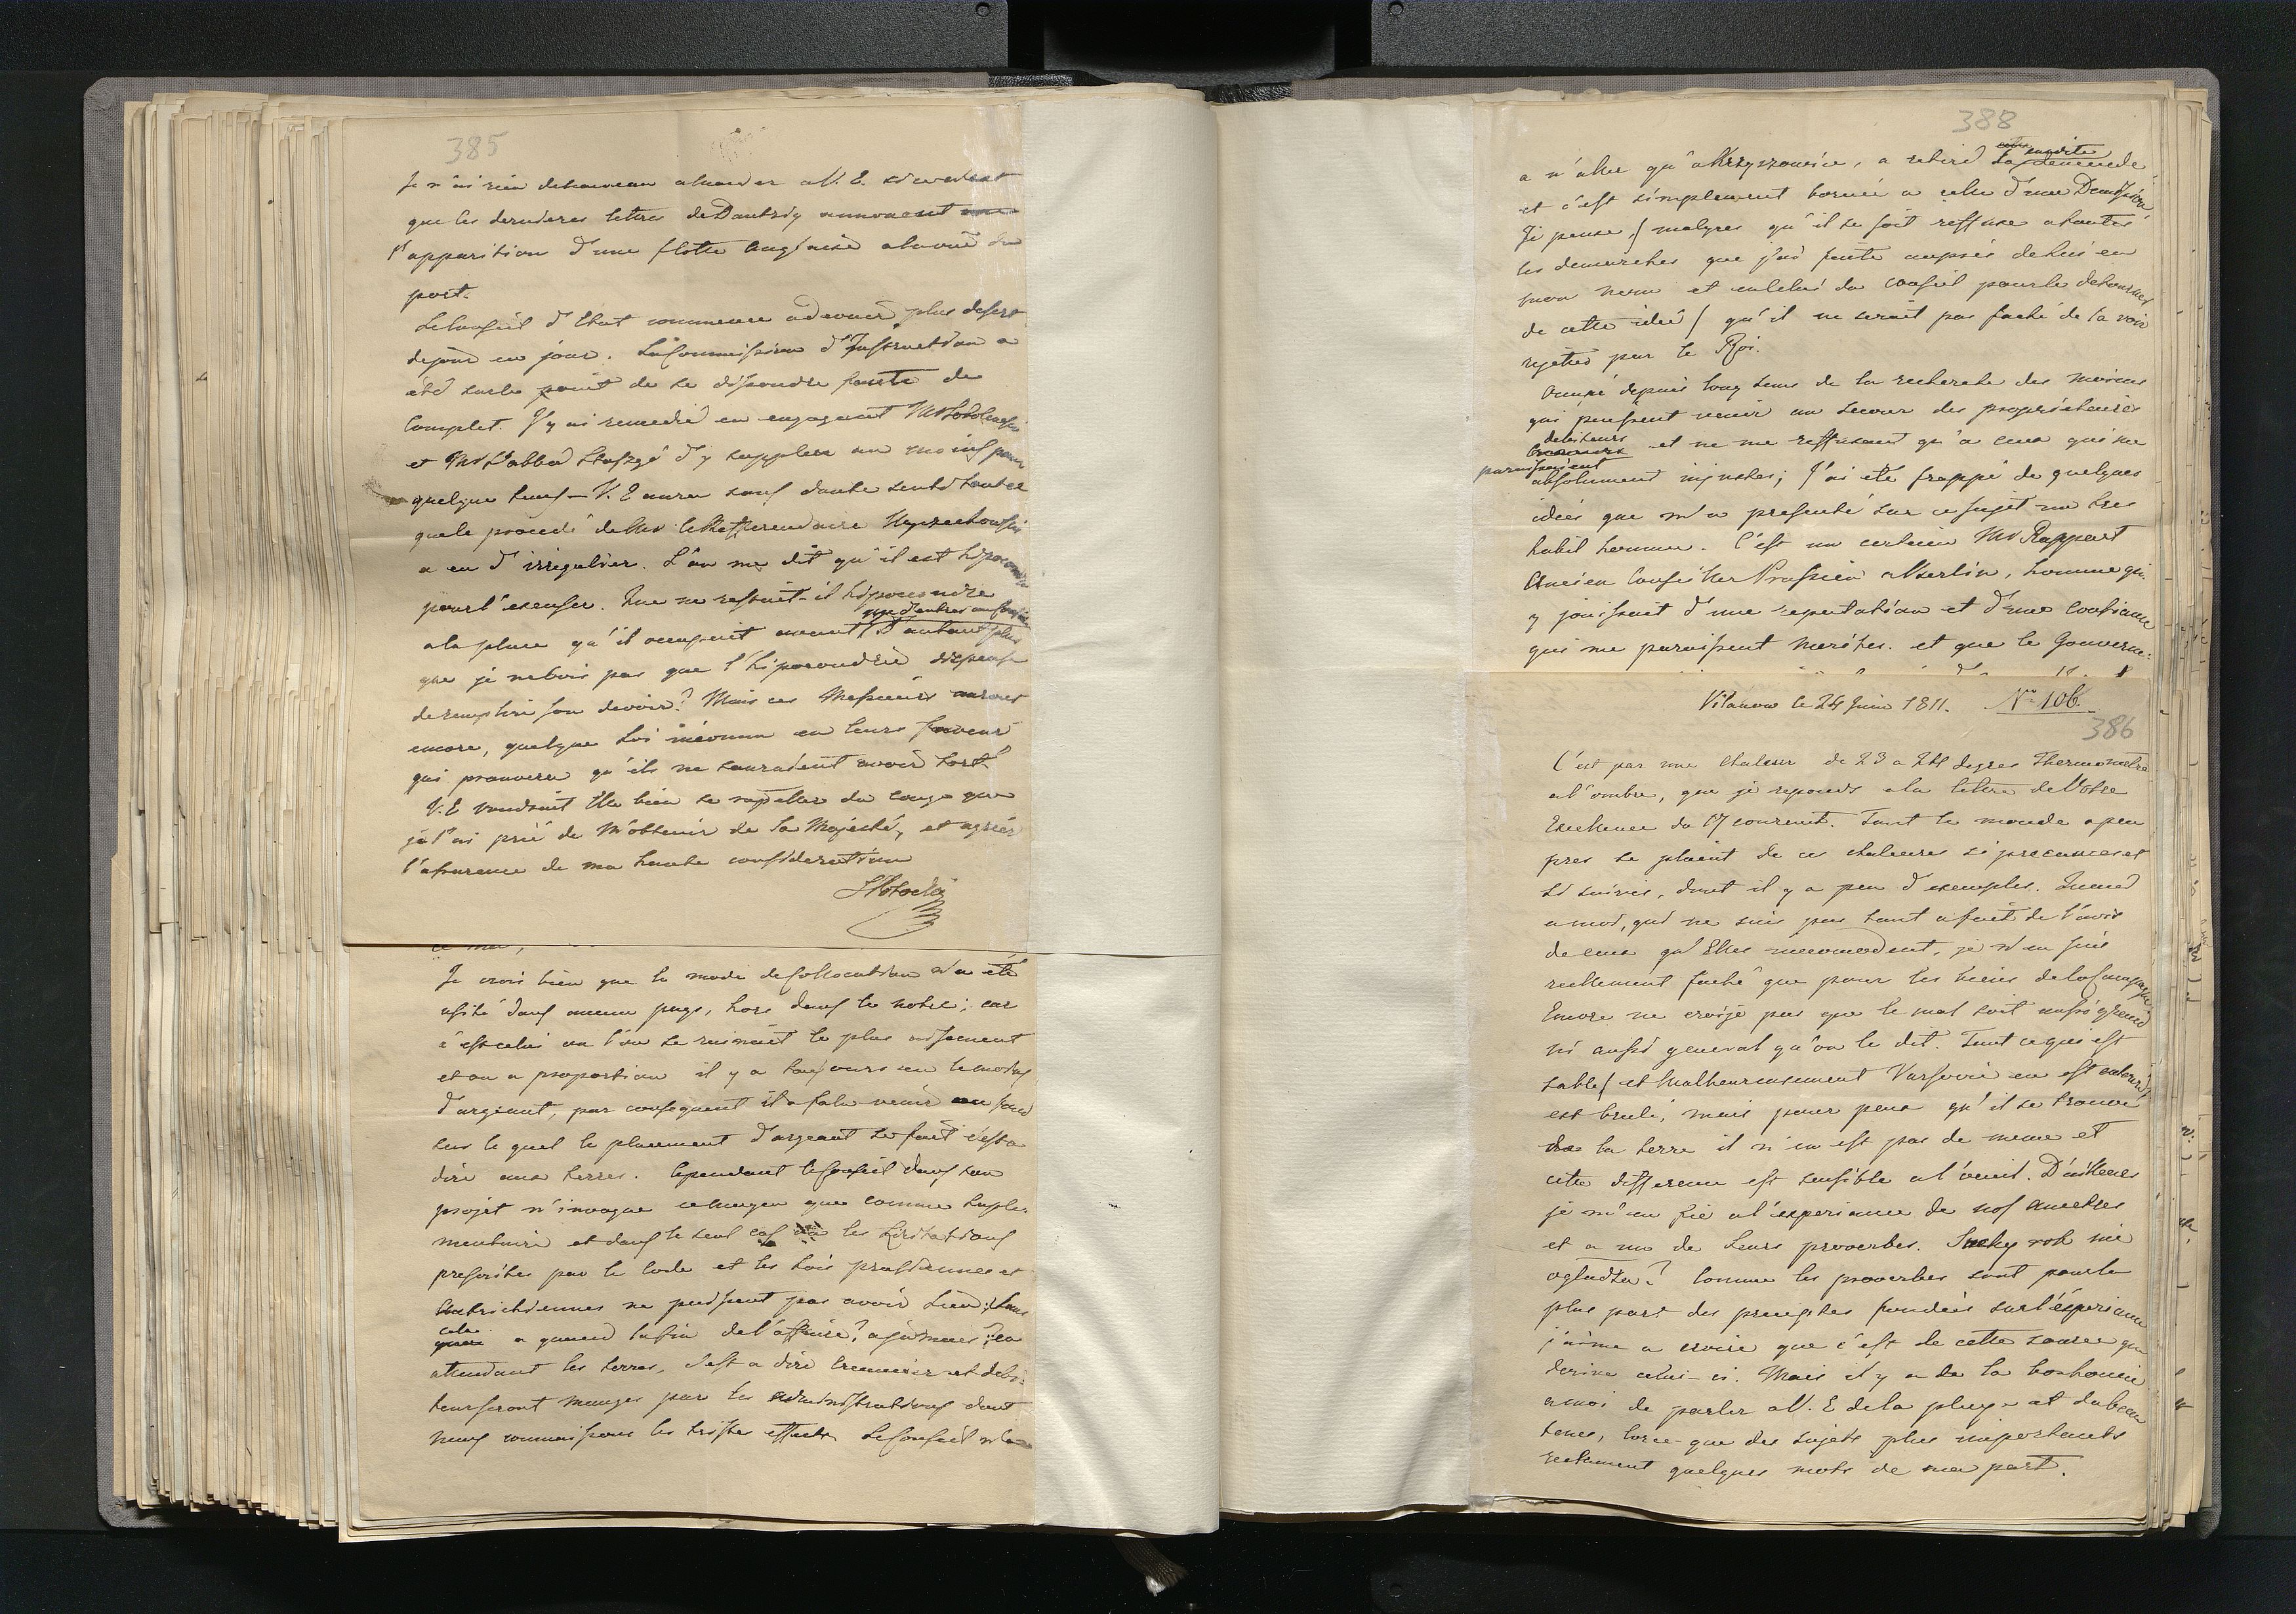 385
Je n'ai rien de nouveau a mander a V. E. si ce n'est
que les dernieres lettres de Dantzig annoncent
l'apparition d'une flotte Anglaise a la vue du
port.
Le Conseil d'Etat commence a devenir plus desert
de jour en jour. La Commission d'Instruction a
été sur le point de se dissoudre faute de
Complet. J'y ai remedié en engageant Mr
et Mr l'abbé Staszyc d'y suppléer au moins pour
quelque tems – V. E aura sans doute senti tout ce
que le procedé de Mr le Refferendaire
a eu d'irregulier. L'on me dit qu'il est hipocondre
pour l'excuser. Que ne restait-il hipocondre
a la place qu'il occupait avant d'autant plus
que je ne vois pas que l'hipocondrie dispense
de remplir son devoir? Mais ces Messieurs auront
encore, quelque Loi inconnue en leurs faveur
qui prouvera qu'ils ne sauraient avoir tort.
V. E voudrait Elle bien se rapeller du congé que
je l'ai prié de m'obtenir de Sa Majesté, et agréer
l'assurance de ma haute consideration
SPotocki
Je crois bien que le mode de collocation n'a été
usité dans aucun pays, hors dans le notre; car
c'est celui ou l'on se ruinait le plus aisement
et ou a proportion il y a toujours eu le moins
d'argeant, par consequent il a falu venir au fond
sur le quel le placement d'argeant se fait c'est a
dire aux terres. Cependant le Conseil dans son
projet n'invoque ce moyen que comme suple-
mentaire et dans le seul cas ou les Licitations
prescrites par le Code et les Lois prussiennes et
Autrichiennes ne puissent pas avoir Lieu; sans
cela
a quand la fin de l'affaire? a jamais? en
attendant les terres, c'est a dire creancier et debi-
teur seront mangés par les administrations dont
nous connaissons les tristes effets. Le Conseil n'a
388
cette susdite
a n'aller qu'a Krzyszowice, a retiré sa demande
et c'est simplement borné a celle d'une Demission
Je pense, (malgres qu'il se soit reffusé a toutes
les demarches que j'ai faite auprès de lui en
mon nom et celui du conseil pour le detourner
de cette idée) qu'il ne serait pas faché de la voir
rejettée par le Roi.
Occupé depuis long tems de la recherche des moiens
qui puissent venir au secour des proprietaires
debiteurs
et ne me reffusant qu'a ceux qui me
paraissaient
absolument injustes; J'ai été frappé de quelques
idées que m'a presenté sur ce sujet un tres
habil homme. C'est un certain Mr Rappart
Ancien Conseiller Prussien a Berlin, homme qui
y jouissait d'une reputation et d'une confiance
qui me paraissent merités. et que le Gouverne-
Vilanow le 24 Juin 1811. No 106.
386
C'est par une chaleur de 23 a 24 degres Thermometre
a l'ombre, que je reponds a la lettre de Votre
Excellence du 17 courant. Tout le monde a peu
pres se plaint de ces chaleurs si precauces et
si suivies, dont il y a peu d'exemples. Quand
a moi, qui ne suis pas tout a fait de l'avis
de ceux qu'Elles incomodent, je n'en suis
reellement faché que pour les biens de la Campagne
Encore ne crois-je pas que le mal soit aussi grand
ni aussi general qu'on le dit. Tout ce qui est
sable (et Malheureusement Varsovie en est entouré)
est brulé, mais pour peux qu'il se trouve
de la terre il n'en est pas de meme et
cette difference est sensible a l'oeuil. D'ailleurs
je m'en fie a l'experience de nos Ancetres
et a un de leurs proverbes. Suchy rok nie
ogładza? Comme les proverbes sont pour la
plus part des preceptes fondés sur l'experience
j'aime a croire que c'est de cette source que
derive celui-ci. Mais il y a de la bonhomie
a moi de parler a V. E de la pluye et du beau
tems, lorce-que des sujets plus importants
reclament quelques mots de ma part.